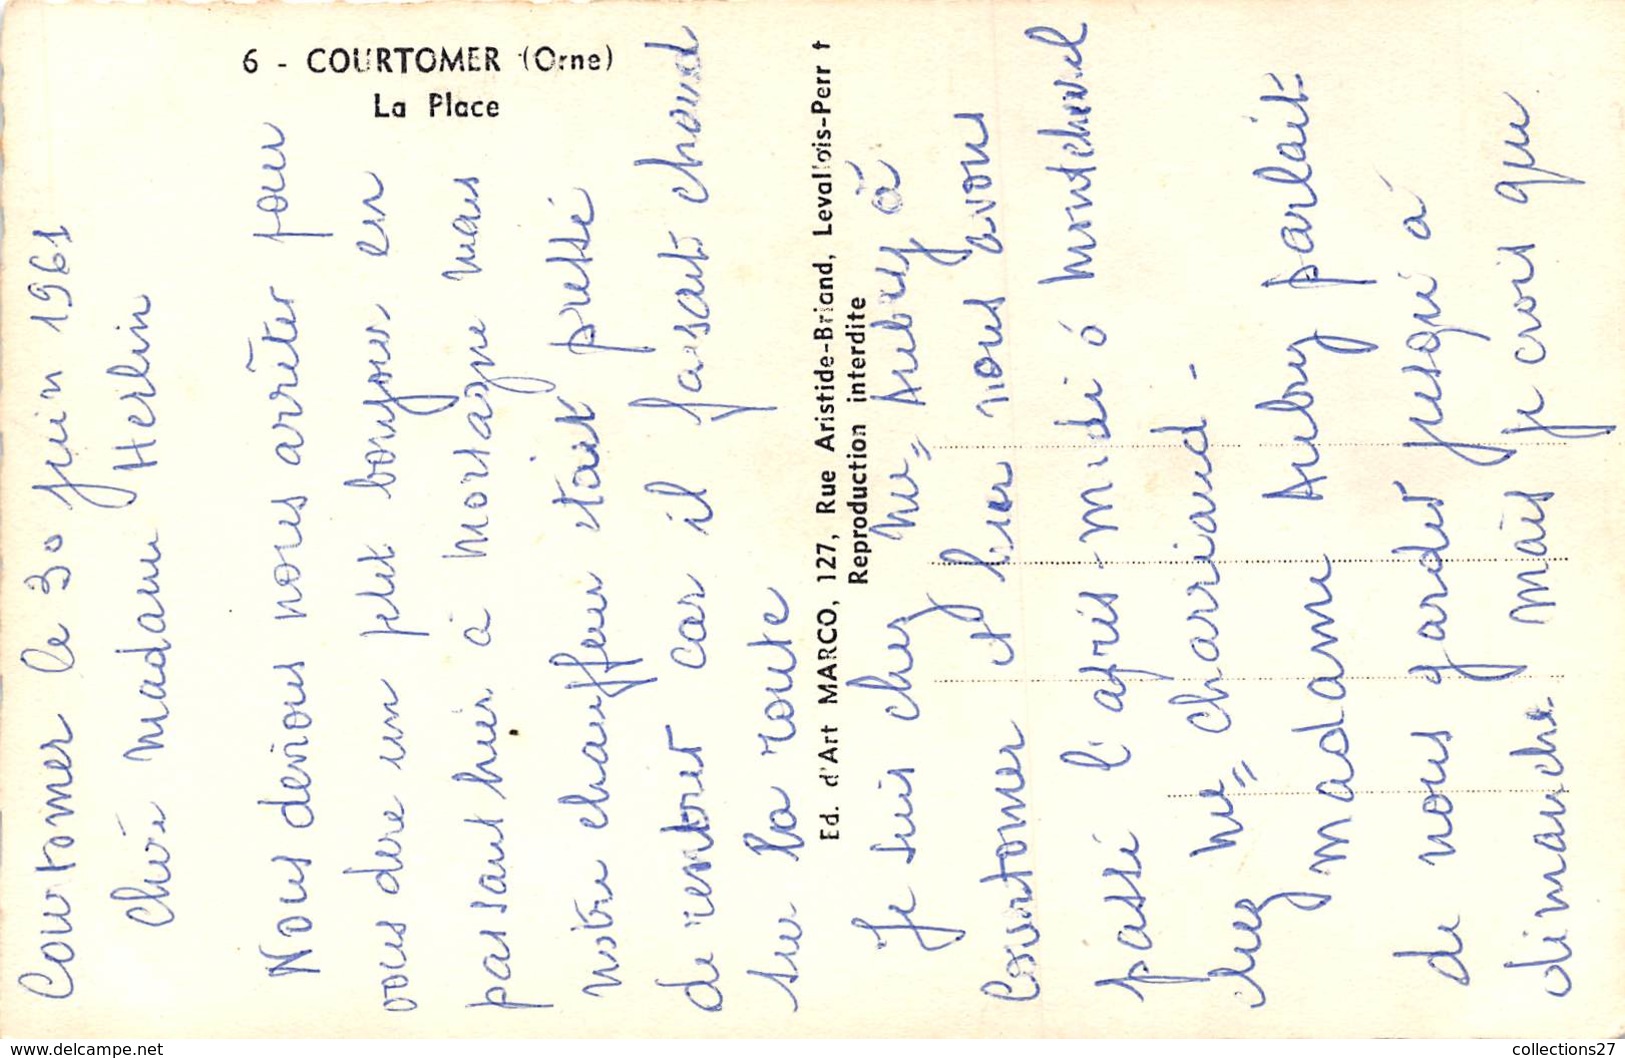 6 - COURTOMER (Orne)
La Place
Ed. d'Art MARCO, 127, Rue Aristide-Briand, Levallois-Perr t
Reproduction interdite
Courtomer le 30 juin 1961
Chère Madame Herlin
Nous devions nous arrêter pour
vous dire un petit bonjour en
passant hier à mortagne mais
notre chauffeur était pressé
de rentrer car il faisait chaud
sur la route
Je suis chez Me Aubry à
Courtomer et hier nous avons
passé l'après-midi à montcheval
chez Me Charriaud -
madame Aubry parlait
de nous garder jusqu'à
dimanche mais je crois que
www.delcampe.net
collections27